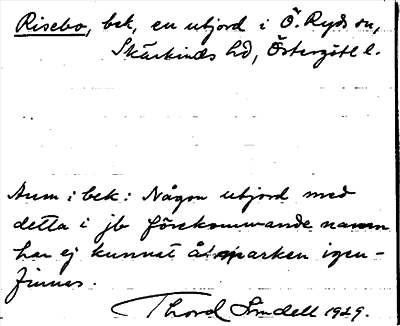 Risebo, bek, en utjord i Ö. Ryds sn,
Skärkinds hd, Östergötl l.
Anm i bek: Någon utjord med
detta i jb förekommande namn
har ej kunnat åter igen-
finnas.
Thord Lindell 1929.